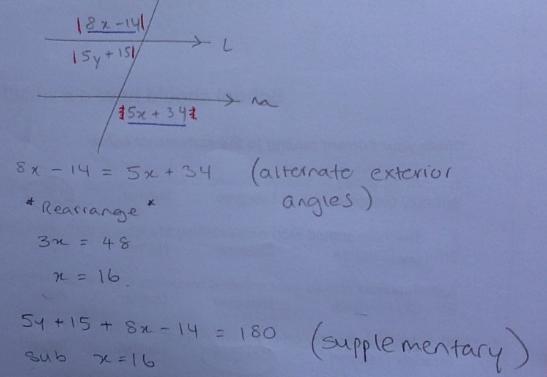 |8x-14|
L
|5y+15|
m
5x+34
8x - 14 = 5x + 34 (alternate exterior
angles)
*Rearrange*
3x = 48
x = 16.
5y + 15 + 8x - 14 = 180 (supplementary)
sub x = 16